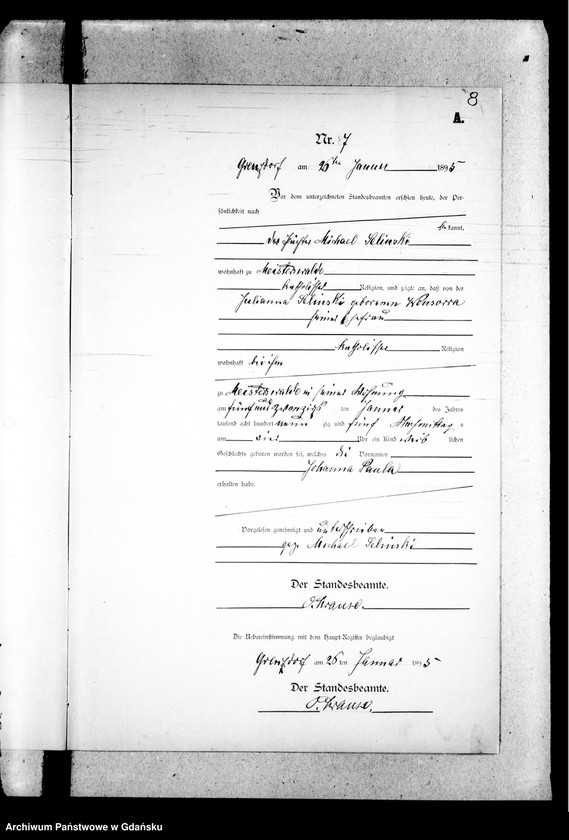 8
A.
Nr. 7
Grenzdorf am 26ten Januar 1895
Vor dem unterzeichneten Standesbeamten erschien heute, der Per-
sönlichkeit nach
be kannt,
der Michael Selinski
wohnhaft zu Meisterswalde
katholischer Religion, und zeigte an, daß von der
Julianna Selinski geborenen
seiner Ehefrau
katholischer Religion
wohnhaft bei ihm
zu Meisterswalde in seiner Wohnung
am fünf und zwanzigsten Januar des Jahres
tausend acht hundert neun zig und fünf Nachmittag s
um vier Uhr ein Kind weib lichen
Geschlechts geboren worden sei, welches die Vornamen
Johanna Paula
erhalten habe.
Vorgelesen genehmigt und unterschrieben
gez. Michael Selinski
Der Standesbeamte.
O. Krause.
Die Uebereinstimmung mit dem Haupt-Register beglaubigt
Grenzdorf am 26 ten Januar 1895
Der Standesbeamte.
O. Krause.
Archiwum Państwowe w Gdańsku